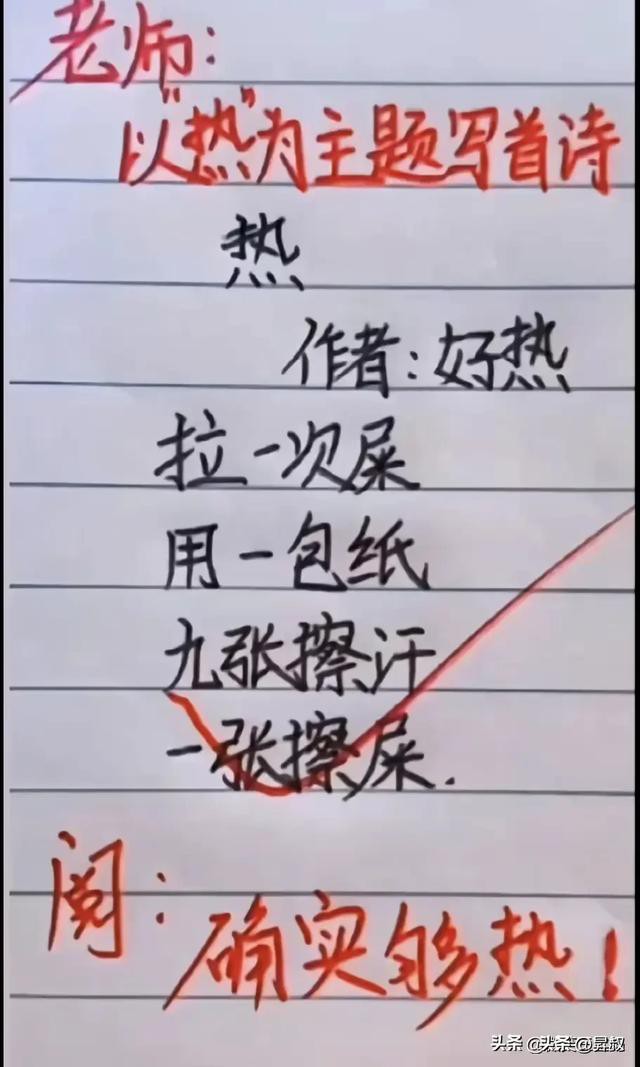 老师：
以"热"为主题写首诗
热
作者：好热
拉一次屎
用一包纸
九张擦汗
一张擦屎.
阅：
确实够热！
头条 @头条@昙叔